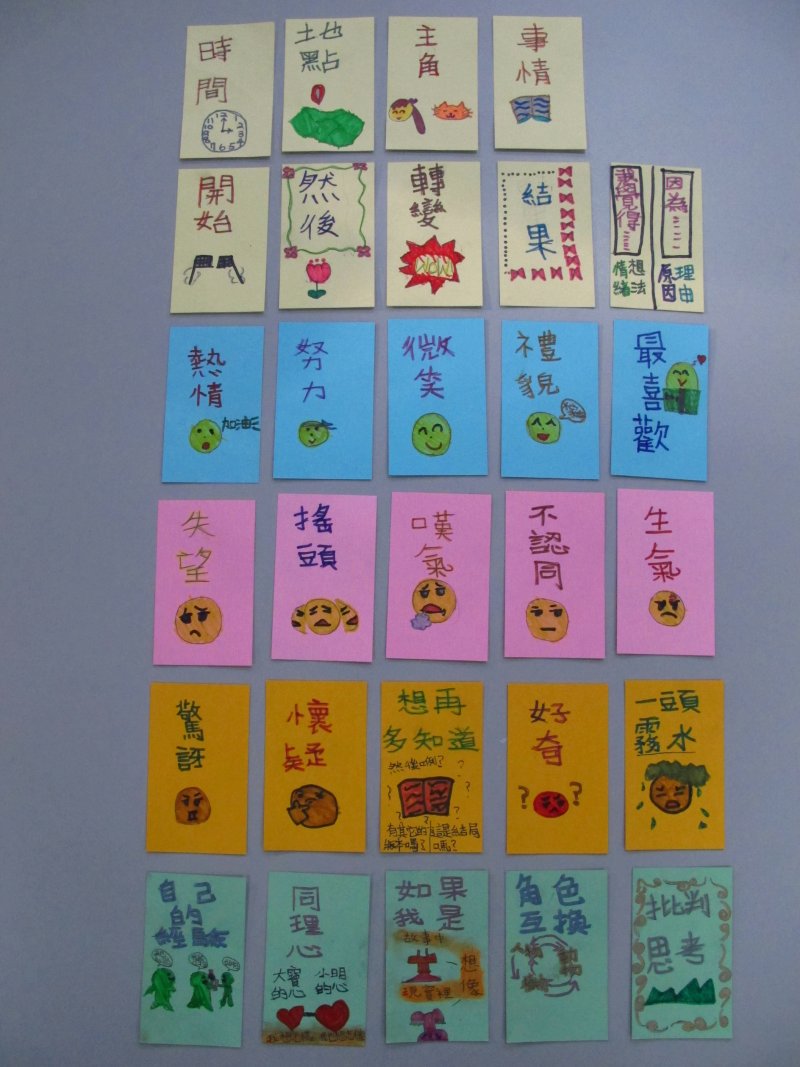 時間
12
1
2
3
4
5
6
7
8
9
10
11
土也
黑占
主角
事情
開始
然後
轉變
WOW
結果
我覺得……
情緒
想法
因為……
原因
理由
熱情
加油
努力
微笑
禮貌
最喜歡
失望
搖頭
嘆氣
不認同
生氣
驚訝
懷疑
想再
多知道
然後咧?
? ? ? ? ?
有其它的
這是結局
嗎?
好奇
? ?
一頭
霧水
自己
的
經驗
同理心
大寶
的心
小明
的心
如果
我是
故事中
想像
現實裡
角色
互換
批判
思考